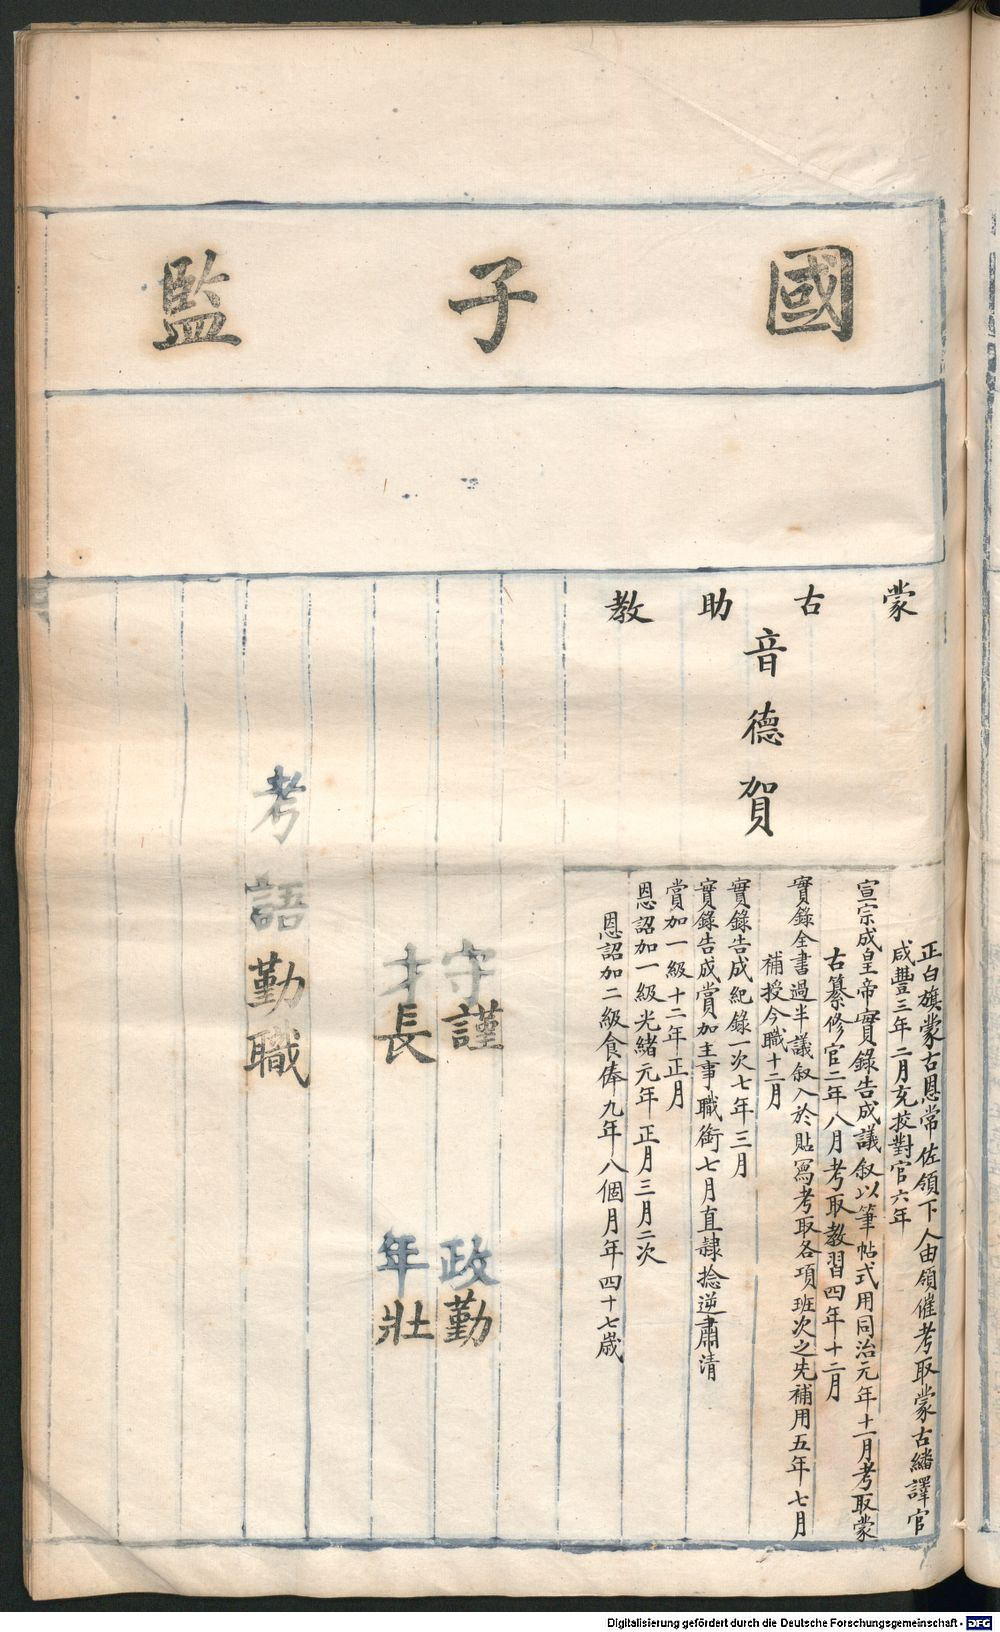 國子監
蒙古助教
音德賀
正白旗蒙古恩常佐領下人由領催考取蒙古繙譯官
咸豐三年二月充挍對官六年
宣宗成皇帝實錄告成議敘以筆帖式用同治元年十一月考取蒙
古纂修官二年八月考取教習四年十二月
實錄全書過半議敘入於貼寫考取各項班次之先補用五年七月
補授今職十二月
實錄告成紀錄一次七年三月
實錄告成賞加主事職銜七月直隸捻逆肅清
賞加一級十二年正月
恩詔加一級光緒元年正月三月二次
恩詔加二級食俸九年八個月年四十七歲
守謹 政勤
才長 年壯
考語勤職
Digitalisierung gefördert durch die Deutsche Forschungsgemeinschaft - DFG